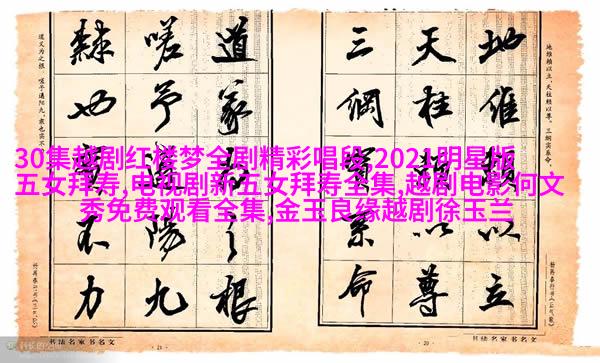 30集越剧红楼梦全剧精彩唱段,2021明星版
五女拜寿,电视剧新五女拜寿全集,越剧电影何文
秀免费观看全集,金玉良缘越剧徐玉兰
地维赖以立,天柱赖以尊。三纲实系命,
地維賴以立
天柱賴以尊
三綱實系命
书法名家书名文
20
道義之根
嗟予陽九
隸也不力
道义为之根。嗟予遘阳九,隶也实不力。
书法名家书名文
21